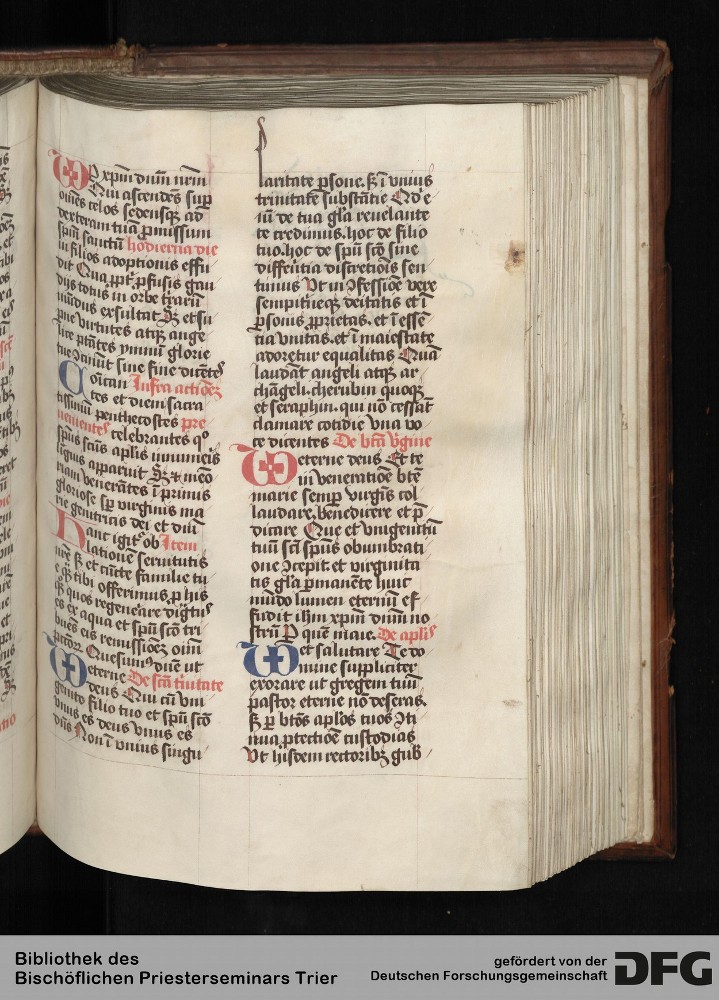 P xpm dnm nrm
Qui ascendes sup
oms celos sedensqz ad
dexteram tua pmissum
spm sanctu hodierna die
in filios adoptionis effu
dit Qua ppt pfusis gau
dijs totus in orbe traru
mudus exsultat Sz et su
pne virtutes atqz ange
lice ptates ymnu glorie
tue cinut sine fine dicetes
Coican Infra actioez
tes et diem sacra
tissimu penthecostes pre
uenientes celebrantes qo
spus scus aplis innumeis
liguis apparuit Sz et meo
riam venerates i primis
gloriose sp virginis ma
rie genitricis dei et dni
Hanc igit ob Item
lationem seruitutis
nre sz et cucte familie tu
e qs tibi offerimus p his
qs quos regenerare digtus
es ex aqua et spu sco tri
bues eis remissioez oim
pctorz Quesumus due ut
eterne De sca tinitate
deus Qui cu vni
genito filio tuo et spu sco
vnus es deus vnus es
dns Non i vnius singu
laritate psone. sz i vnius
trinitate substatie Qd e
ni de tua gla reuelante
te credimus. hoc de filio
tuo. hoc de spu sco sine
differetia discretiois sen
timus Vt in ofessioe vere
sempitneqz deitatis et i
psonis pprietas. et i esse
tia vnitas. et i maiestate
adoretur equalitas Qua
laudat angeli atqz ar
changeli. cherubin quoqz
et seraphin. qui no cessat
clamare cotidie vna vo
ce dicentes De bta vgine
eterne deus Et te
in veneratioe bte
marie semp virgis col
laudare. benedicere et p
dicare Que et vnigenitu
tuu sci spus obumbrati
one ocepit. et virginita
tis gla pmanete huic
mudo lumen eternu ef
fudit ihm xpm dnm no
stru P quem maie. De aplis
et salutare Te do
mine suppliciter
exorare ut gregem tuu
pastor eterne no deseras.
sz p btos aplos tuos oti
nua ptectioe custodias
Vt hijsdem rectoribz gub
Bibliothek des
Bischöflichen Priesterseminars Trier
gefördert von der
Deutschen Forschungsgemeinschaft
DFG